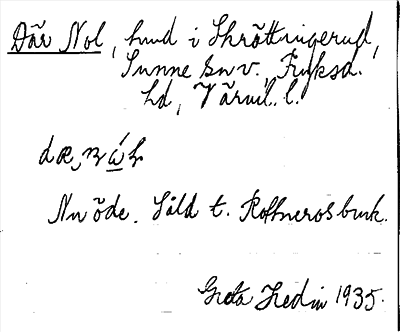 Där Nol, hmd i Skröttingerud,
Sunne sn v., Fryksd.
hd, Värml. l.
Nu öde. Såld t. Rottneros bruk.
Greta Hedin 1935.